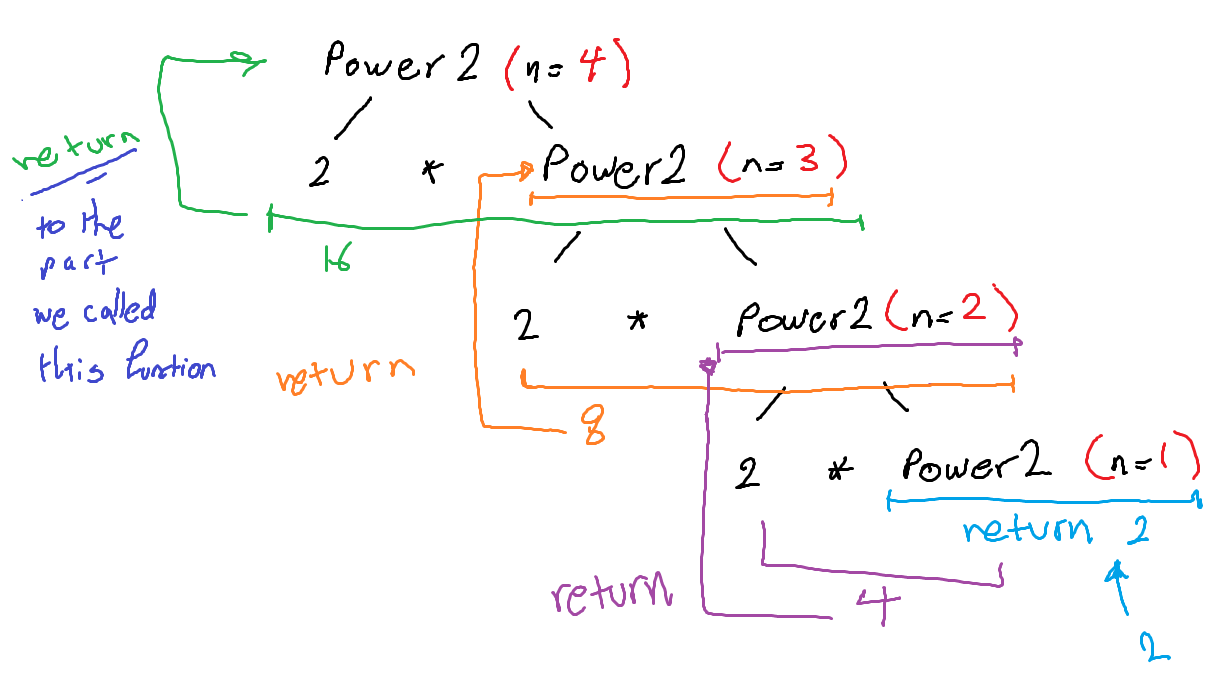 Power 2 (n= 4)
return
2 * Power2 (n=3)
to the
part
we called
this function
16
2 * Power2 (n=2)
return
8
2 * Power2 (n=1)
return 2
return
4
2